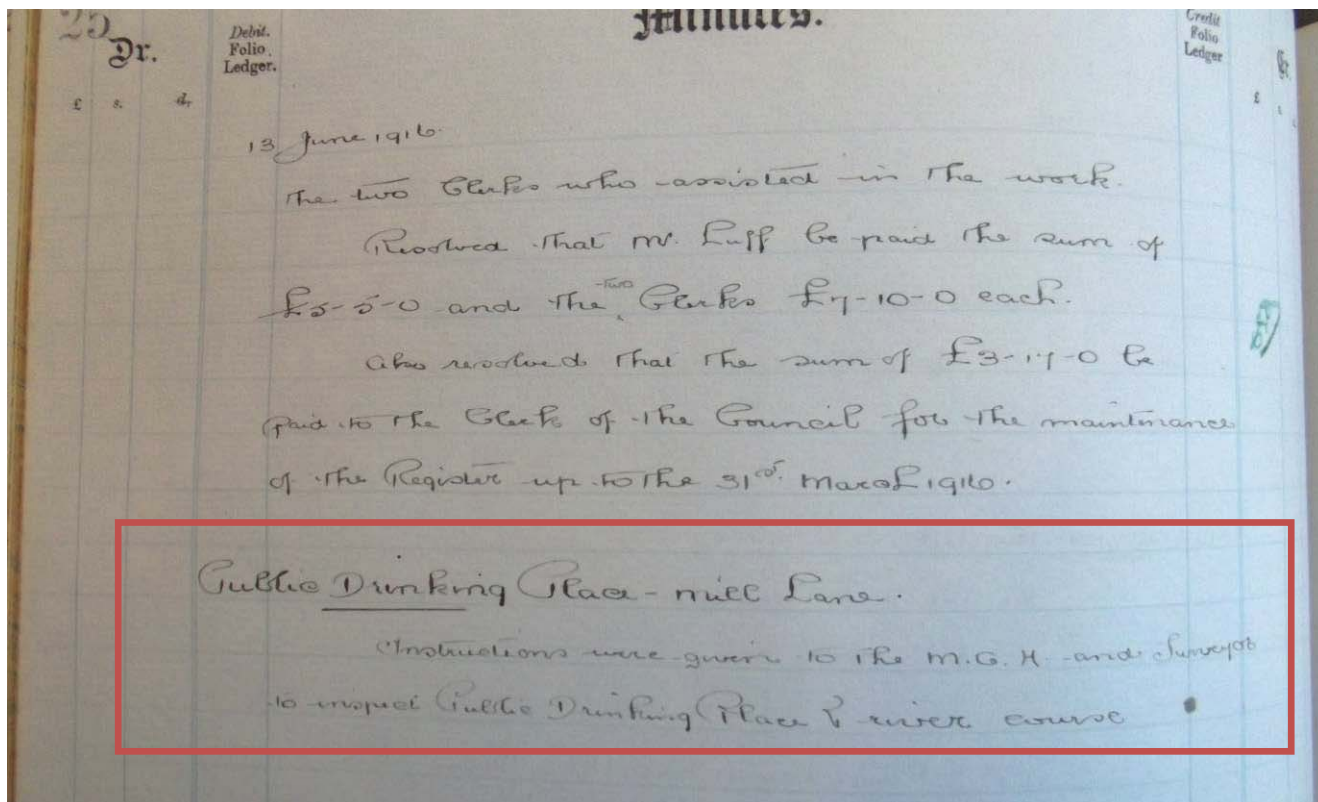 25
Minutes.
Dr.
Debit.
Folio
Ledger.
Credit
Folio
Ledger
£ s. d.
£
13 June 1916.
The two Clerks who assisted in the work.
Resolved that Mr. Luff be paid the sum of
£5-5-0 and the two Clerks £7-10-0 each.
Also resolved that the sum of £3-17-0 be
paid to the Clerk of the Council for the maintenance
of the Register up to the 31st March 1916.
Public Drinking Place - Mill Lane.
Instructions were given to the M.O.H. and Surveyor
to inspect Public Drinking Place & river course